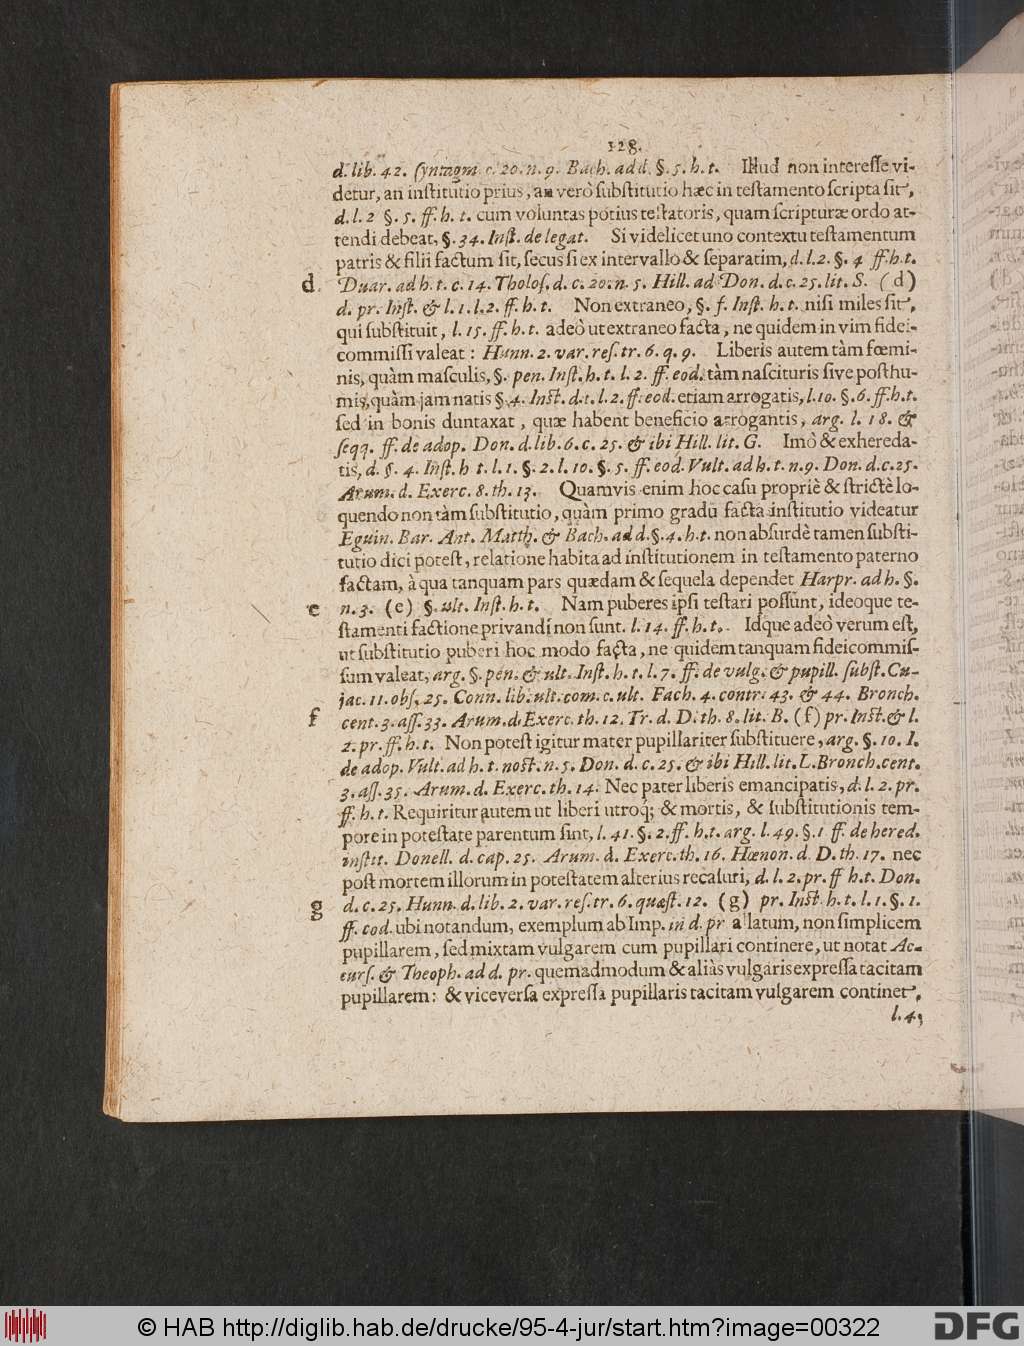 128.
d. lib. 42. syntagm c. 20. n. 9. Bach. ad d. §. 5. h. t. Illud non interesse vi-
detur, an institutio prius, an verò substitutio hæc in testamento scripta sit,
d. l. 2 §. 5. ff. h. t. cum voluntas potius testatoris, quam scripturæ ordo at-
tendi debeat, §. 34. Inst. de legat. Si videlicet uno contextu testamentum
patris & filii factum sit, secus si ex intervallo & separatim, d. l. 2. §. 4 ff. h. t.
d Duar. ad h. t. c. 14. Tholos. d. c. 20. n. 5. Hill. ad Don. d. c. 25. lit. S. (d)
d. pr. Inst. & l. 1. l. 2. ff. h. t. Non extraneo, §. f. Inst. h. t. nisi miles sit,
qui substituit, l. 15. ff. h. t. adeò ut extraneo facta, ne quidem in vim fidei-
commissi valeat: Hunn. 2. var. res. tr. 6. q. 9. Liberis autem tàm fœmi-
nis, quàm masculis, §. pen. Inst. h. t. l. 2. ff. eod. tàm nascituris sive posthu-
mis, quàm jam natis §. 4. Inst. d. t. l. 2. ff. eod. etiam arrogatis, l. 10. §. 6. ff. h. t.
sed in bonis duntaxat, quæ habent beneficio arrogantis, arg. l. 18. &
seqq. ff. de adop. Don. d. lib. 6. c. 25. & ibi Hill. lit. G. Imò & exhereda-
tis, d. §. 4. Inst. h t. l. 1. §. 2. l. 10. §. 5. ff. eod. Vult. ad h. t. n. 9. Don. d. c. 25.
Arum. d. Exerc. 8. th. 13. Quamvis enim hoc casu propriè & strictè lo-
quendo non tàm substitutio, quàm primo gradu facta institutio videatur
Eguin. Bar. Ant. Matth. & Bach. ad d. §. 4. h. t. non absurdè tamen substi-
tutio dici potest, relatione habita ad institutionem in testamento paterno
factam, à qua tanquam pars quædam & sequela dependet Harpr. ad h. §.
e n. 3. (e) §. ult. Inst. h. t. Nam puberes ipsi testari possunt, ideoque te-
stamenti factione privandi non sunt. l. 14. ff. h. t. Idque adeò verum est,
ut substitutio puberi hoc modo facta, ne quidem tanquam fideicommis-
sum valeat, arg. §. pen. & ult. Inst. h. t. l. 7. ff. de vulg. & pupill. subst. Cu-
jac. 11. obs. 25. Conn. lib. ult. com. c. ult. Fach. 4. contr. 43. & 44. Bronch.
f cent. 3. ass. 33. Arum. d. Exerc. th. 12. Tr. d. D. th. 8. lit. B. (f) pr. Inst. & l.
2. pr. ff. h. t. Non potest igitur mater pupillariter substituere, arg. §. 10. I.
de adop. Vult. ad h. t. nost. n. 5. Don. d. c. 25. & ibi Hill. lit. L. Bronch. cent.
3. ass. 35. Arum. d. Exerc. th. 14. Nec pater liberis emancipatis, d. l. 2. pr.
ff. h. t. Requiritur autem ut liberi utroq; & mortis, & substitutionis tem-
pore in potestate parentum sint, l. 41. §. 2. ff. h. t. arg. l. 49. §. 1 ff. de hered.
instit. Donell. d. cap. 25. Arum. d. Exerc. th. 16. Hœnon. d. D. th. 17. nec
post mortem illorum in potestatem alterius recasuri, d. l. 2. pr. ff h. t. Don.
g d. c. 25. Hunn. d. lib. 2. var. res. tr. 6. quæst. 12. (g) pr. Inst. h. t. l. 1. §. 1.
ff. eod. ubi notandum, exemplum ab Imp. in d. pr allatum, non simplicem
pupillarem, sed mixtam vulgarem cum pupillari continere, ut notat Ac-
curs. & Theoph. ad d. pr. quemadmodum & aliàs vulgaris expressa tacitam
pupillarem: & viceversa expressa pupillaris tacitam vulgarem continet,
l. 4,
© HAB http://diglib.hab.de/drucke/95-4-jur/start.htm?image=00322
DFG